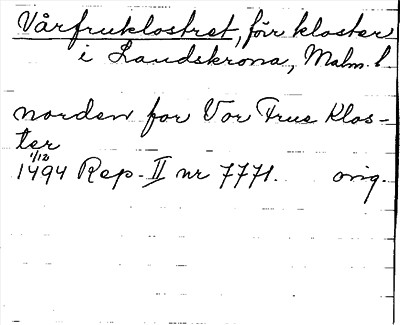 Vårfruklostret, förr kloster
i Landskrona, Malm. l
norden for Vor Frue Klos-
ter
1/12
1494 Rep. II nr 7771. orig.